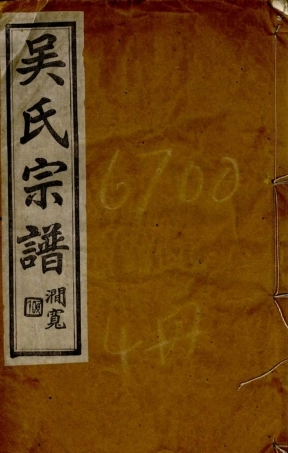 吴氏宗譜
澗寬
6700
4册